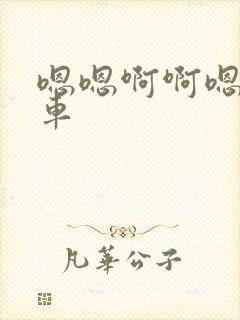 嗯嗯啊啊嗯
車
凡華公子